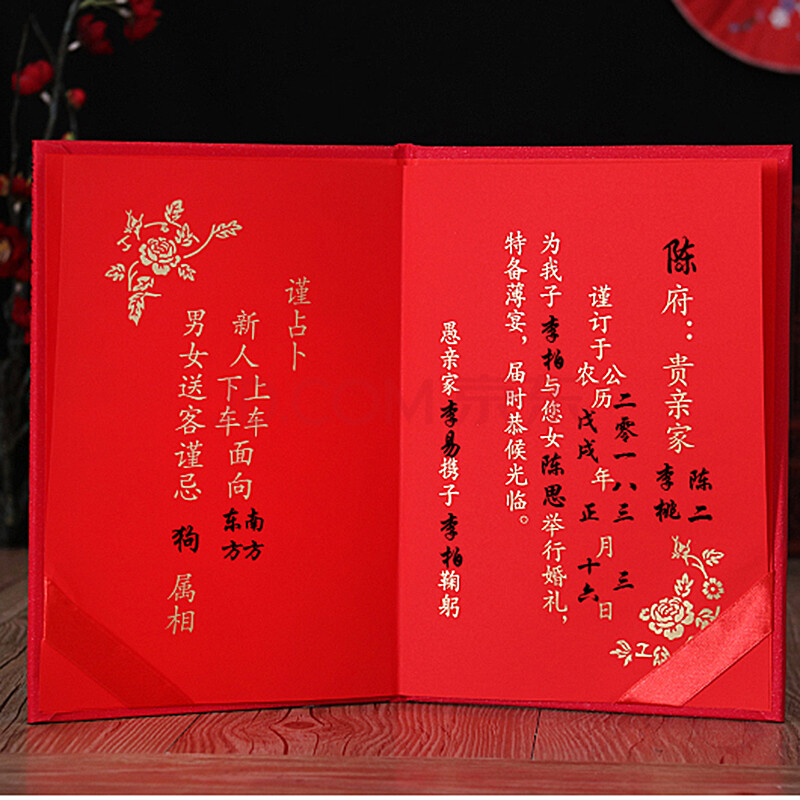 陈府：贵亲家 陈二 李桃
谨订于 公农历 二零一八 戊戌 年 三 正 月 三 十六 日
为我子李柏与您女陈思举行婚礼，
特备薄宴，届时恭候光临。
愚亲家李易携子李柏鞠躬
谨占卜
新人上车下车面向南方东方
男女送客谨忌狗属相